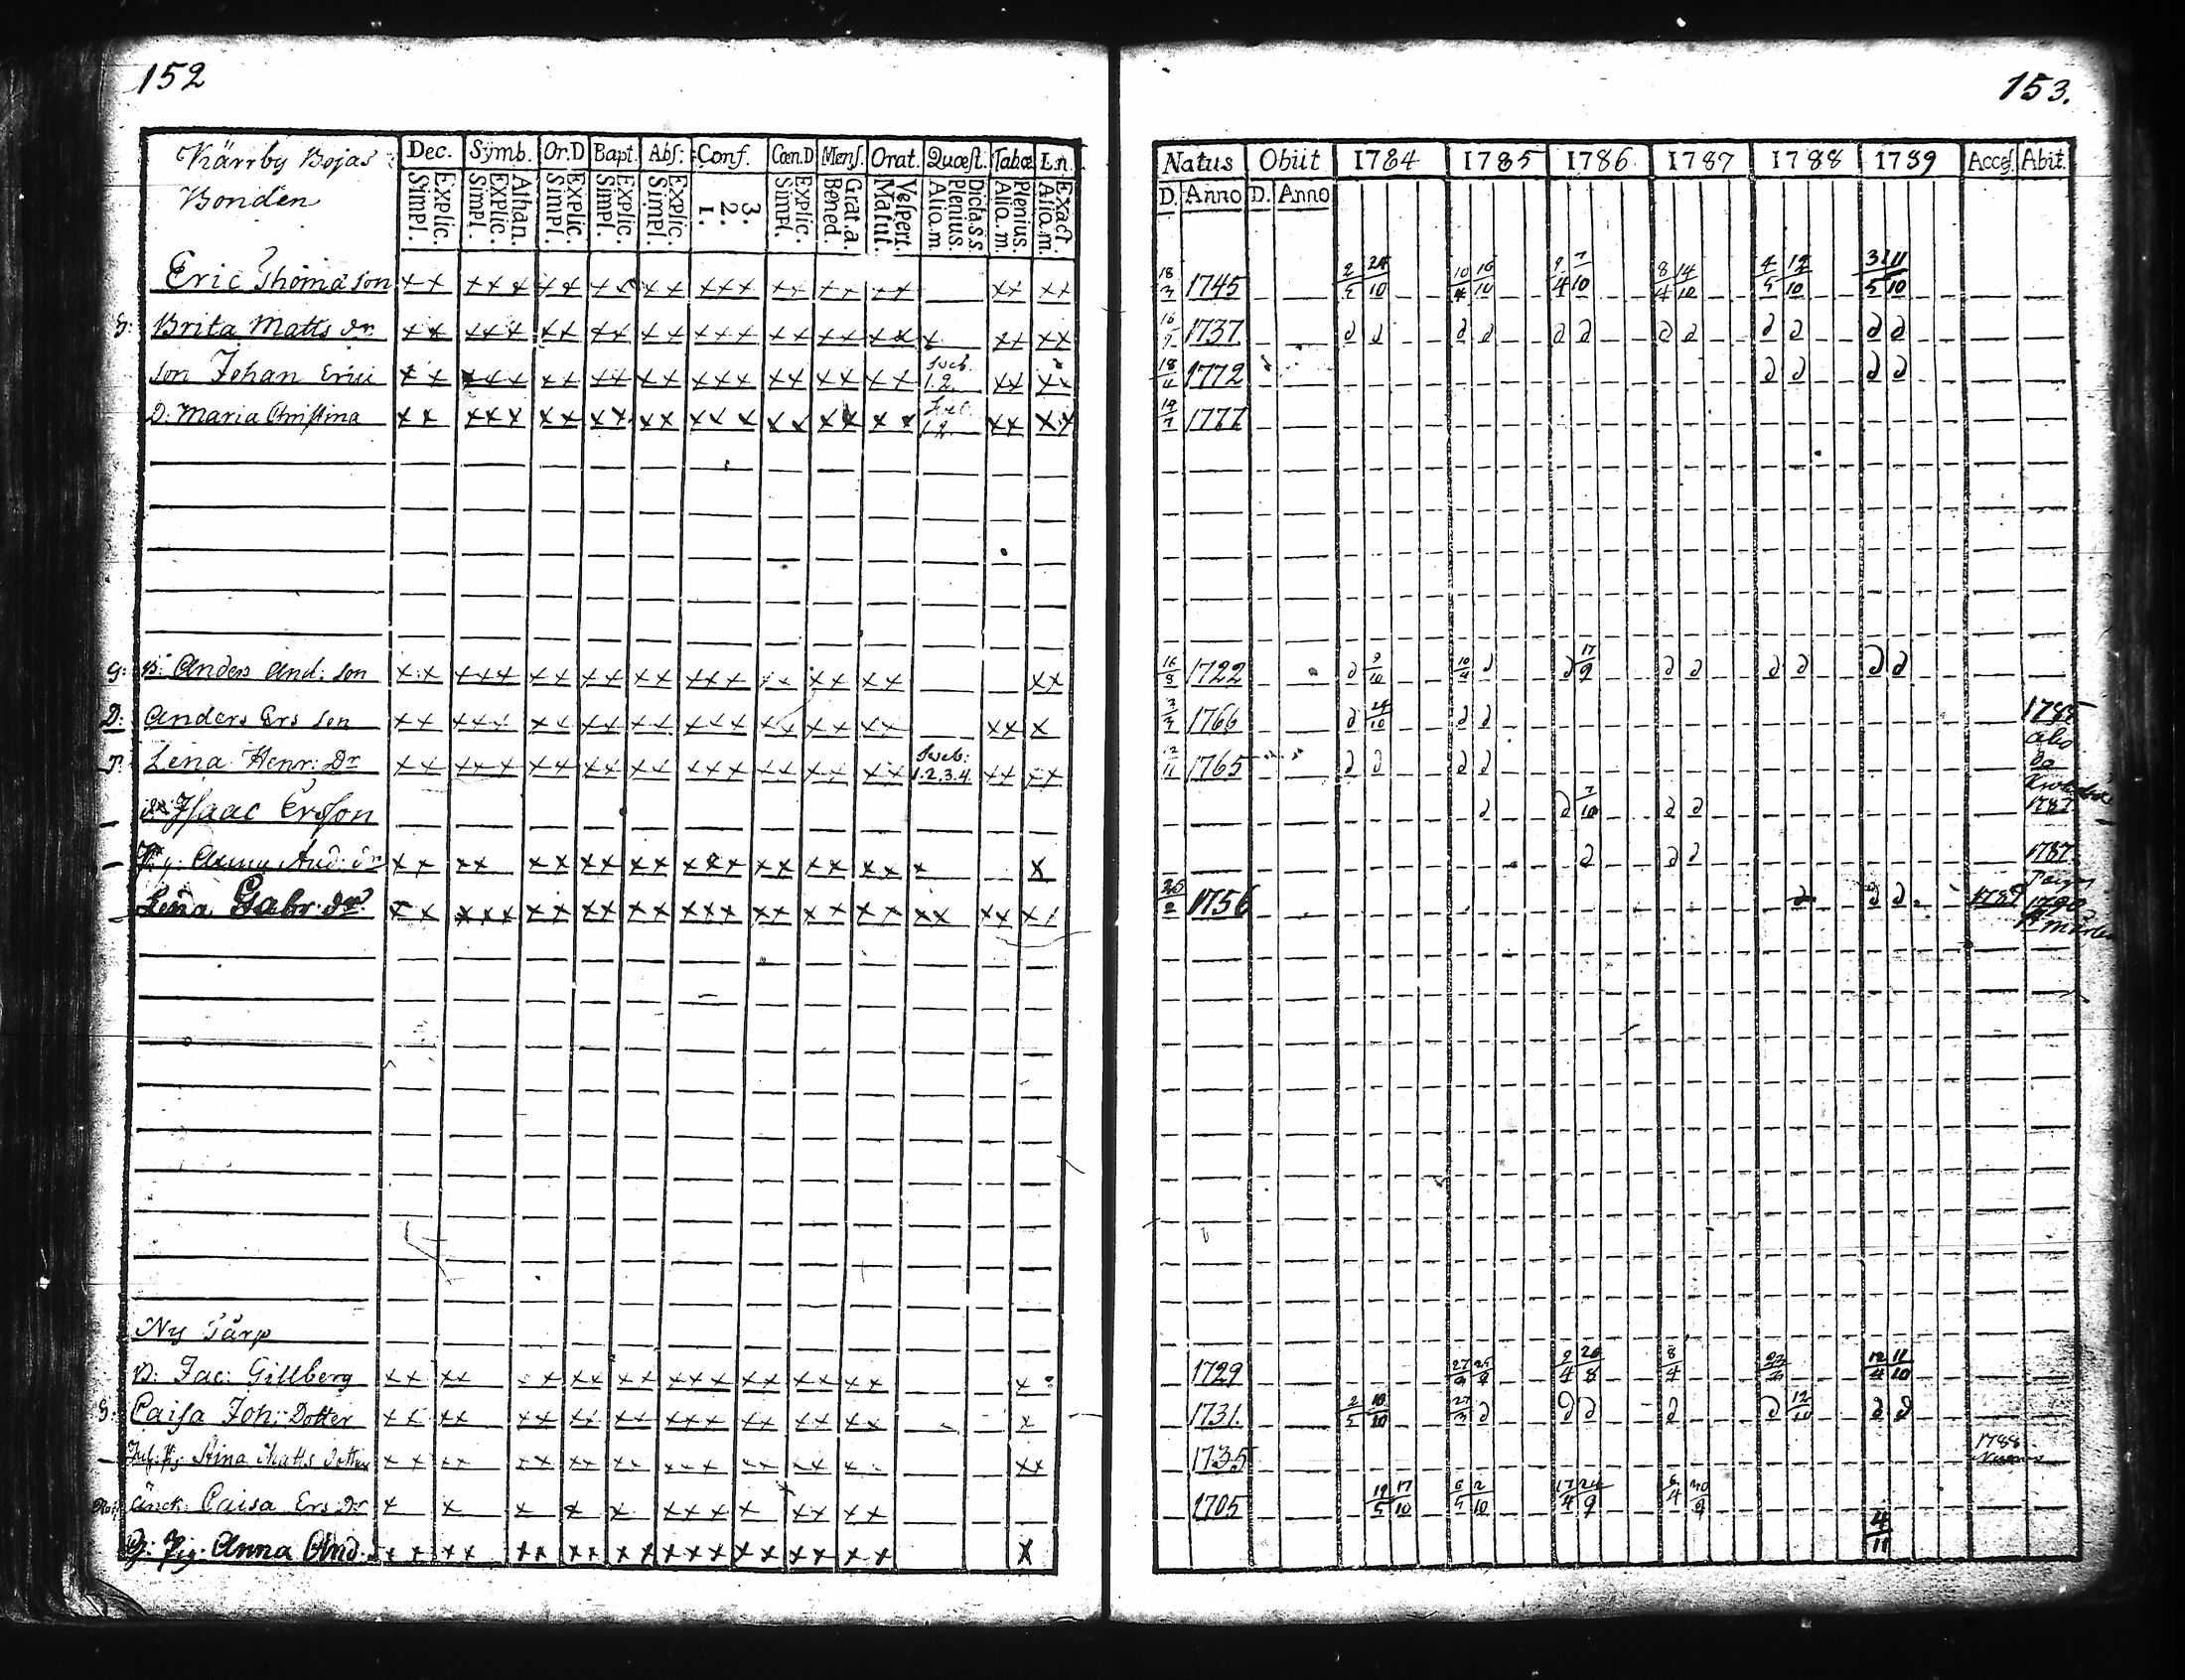 152
Kärrby Bojas
Bonden
Dec. Symb. Or.D Bapt. Abs. Conf. Cœn.D Mens. Orat. Quæst. Tabœ L.n.
Explic. Simpl. Athan. Explic. Simpl. Explic. Simpl. Explic. Simpl. Explic. Simpl. 3. 2. 1. Explic. Simpl. Grat.a. Bened. Vespert. Matut. Dicta.s.s. Plenius. Alio.m. Plenius. Alio.m. Exact. Alio.m.
Eric Thomasson ×× ××× ×× ×× ×× ××× ×× ×× ×× ×× ××
Brita Matts dr ×× ××× ×× ×× ×× ××× ×× ×× ×× × ×× ××
son Johan Erici ×× ××× ×× ×× ×× ××× ×× ×× ×× Sveb. 1.2. ×× ××
D: Maria Christina ×× ××× ×× ×× ×× ××× ×× ×× ×× 1.2. ×× ××
G: B: Anders And: son ×× ××× ×× ×× ×× ××× ×× ×× ×× ××
D: Anders Ers son ×× ××× ×× ×× ×× ××× ×× ×× ×× ×× ×
Lena Henr: Dr ×× ××× ×× ×× ×× ××× ×× ×× ×× Sveb: 1.2.3.4. ×× ××
Isaac Ersson
And: dr ×× ×× ×× ×× ×× ××× ×× ×× ×× × ×
Lena Gabr: dr ×× ××× ×× ×× ×× ××× ×× ×× ×× ×× ×× ××
Ny Tårp
Jac: Gillberg ×× ×× ×× ×× ×× ××× ×× ×× ×× ×
Caisa Joh: Dotter ×× ×× ×× ×× ×× ××× ×× ×× ×× ×
Stina Matts dotter ×× ×× ×× ×× ×× ××× ×× ×× ×× ××
Änck: Caisa Ers: Dr × × × × × ××× × ×× ××
Pig: Anna And: ×× ×× ×× ×× ×× ××× ×× ×× ×× ×
153.
Natus Obiit 1784 1785 1786 1787 1788 1789 Acces. Abit.
D. Anno D. Anno
1745 2/5 24/10 10/4 16/10 9/4 7/10 8/4 14/10 4/5 12/10 11/10
1737 d d d d d d d d d d d d
18/11 1772 d d d d
1777
1722 d 9/10 10/4 d d 17/9 d d d d d d
1766 d 24/10 d d 1785
12/11 1765 d d d d do
d d 7/10 d d 1787
d d d 1787
1756 d d d 1789 1790
1729 9/4 26/8 8/4 12/4 11/10
1731. 2/5 10/10 27/3 d d d d d 12/10 d d
1735 1788
1705 19/5 17/10 6/5 2/10 17/4 24/9 6/4 30/9
4/11